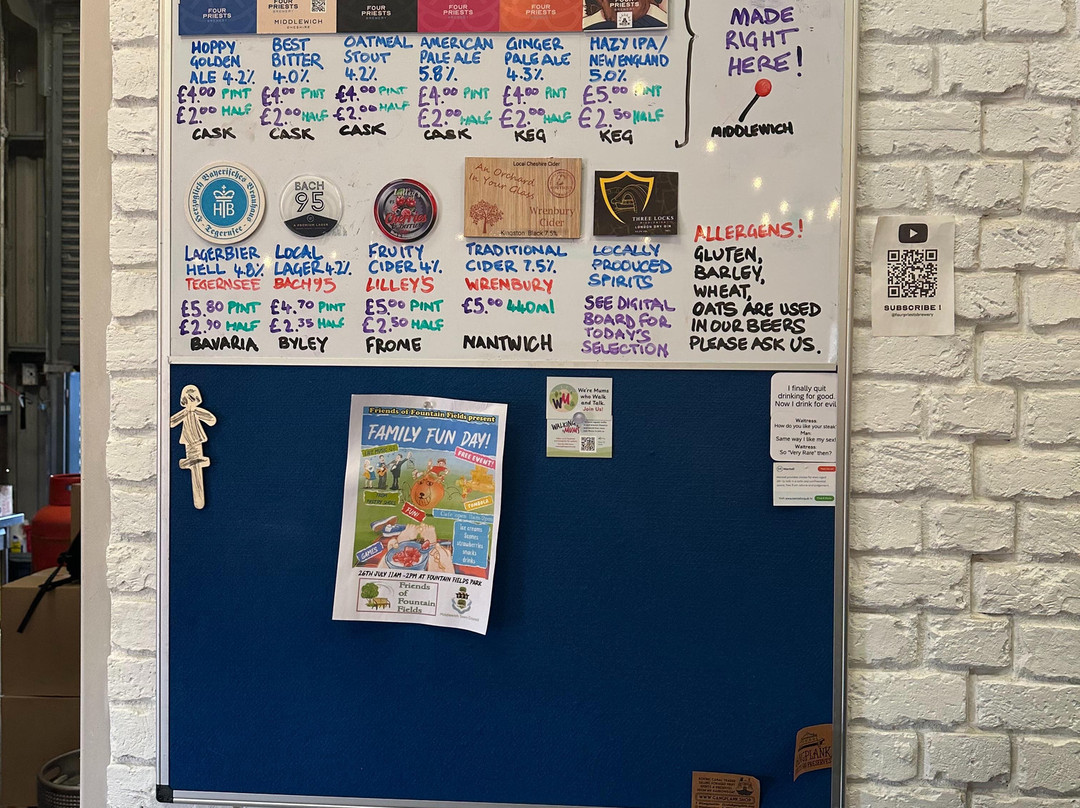 FOUR PRIESTS
FOUR PRIESTS
MIDDLEWICH
FOUR PRIESTS
FOUR PRIESTS
FOUR PRIESTS
PRIESTS
HOPPY
GOLDEN
ALE 4.2%
£4.00 PINT
£2.00 HALF
CASK
BEST
BITTER
4.0%
£4.00 PINT
£2.00 HALF
CASK
OATMEAL
STOUT
4.2%
£4.00 PINT
£2.00 HALF
CASK
AMERICAN
PALE ALE
5.8%
£4.00 PINT
£2.00 HALF
CASK
GINGER
PALE ALE
4.3%
£4.00 PINT
£2.00 HALF
KEG
HAZY IPA/
NEW ENGLAND
5.0%
£5.00 PINT
£2.50 HALF
KEG
MADE
RIGHT
HERE!
MIDDLEWICH
Herzoglich Bayerisches Brauhaus
HTB
Tegernsee
LAGERBIER
HELL 4.8%
TEGERNSEE
£5.80 PINT
£2.90 HALF
BAVARIA
BACH
95
LOCAL
LAGER 4.2%
BACH 95
£4.70 PINT
£2.35 HALF
BYLEY
Lilley's
FRUITY
CIDER 4%
LILLEY'S
£5.00 PINT
£2.50 HALF
FROME
Local Cheshire Cider
An Orchard
In Your Glass
Wrenbury
Cider
Kingston Black 7.5%
TRADITIONAL
CIDER 7.5%
WRENBURY
£5.00 440ml
NANTWICH
THREE LOCKS
LONDON DRY GIN
LOCALLY
PRODUCED
SPIRITS
SEE DIGITAL
BOARD FOR
TODAY'S
SELECTION
ALLERGENS!
GLUTEN,
BARLEY,
WHEAT,
OATS ARE USED
IN OUR BEERS
PLEASE ASK US.
SUBSCRIBE!
@fourpriestsbrewery
Friends of Fountain Fields present
FAMILY FUN DAY!
FREE EVENT!
TOMBOLA
FUN!
GAMES
ice creams
scones
strawberries
snacks
drinks
26TH JULY 11AM - 2PM AT FOUNTAIN FIELDS PARK
Friends
of
Fountain
Fields
We're Mums
who Walk
and Talk.
Join Us!
I finally quit
drinking for good.
Now I drink for evil
Waitress:
How do you like your steak
Man:
Same way I like my sex!
Waitress:
So "Very Rare" then?